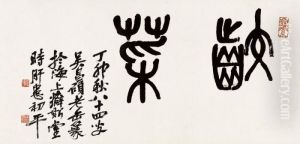 齩菜
丁卯秋八十四
吳昌碩老缶篆
於海上癖斯堂
時肝患初平